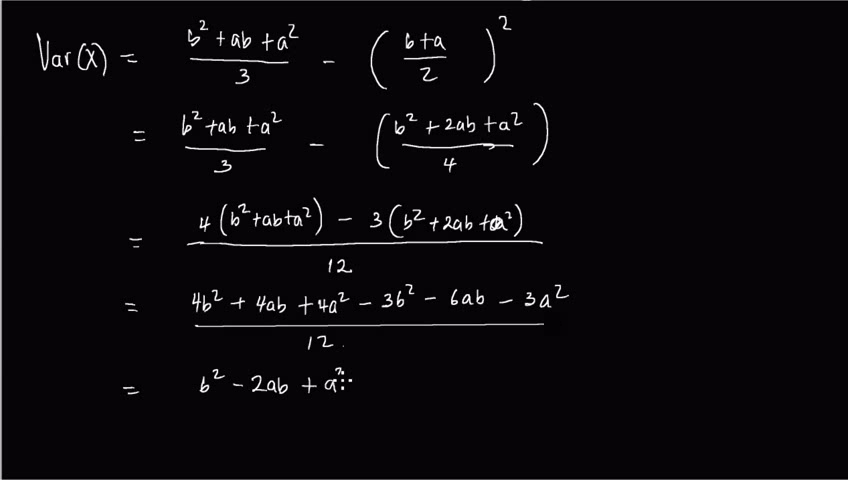 Var(X) = (b² + ab + a²)/3 − ((b+a)/2)²
= (b² + ab + a²)/3 − ((b² + 2ab + a²)/4)
= (4(b² + ab + a²) − 3(b² + 2ab + a²))/12
= (4b² + 4ab + 4a² − 3b² − 6ab − 3a²)/12
= b² − 2ab + a²